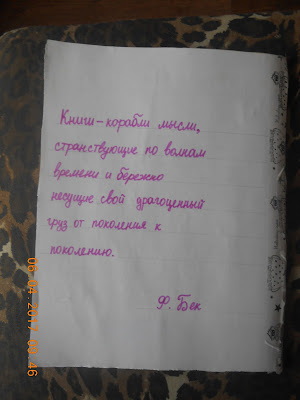 Книги – корабли мысли,
странствующие по волнам
времени и бережно
несущие свой драгоценный
груз от поколения к
поколению.
Ф. Бек
06 04 2017 09 46